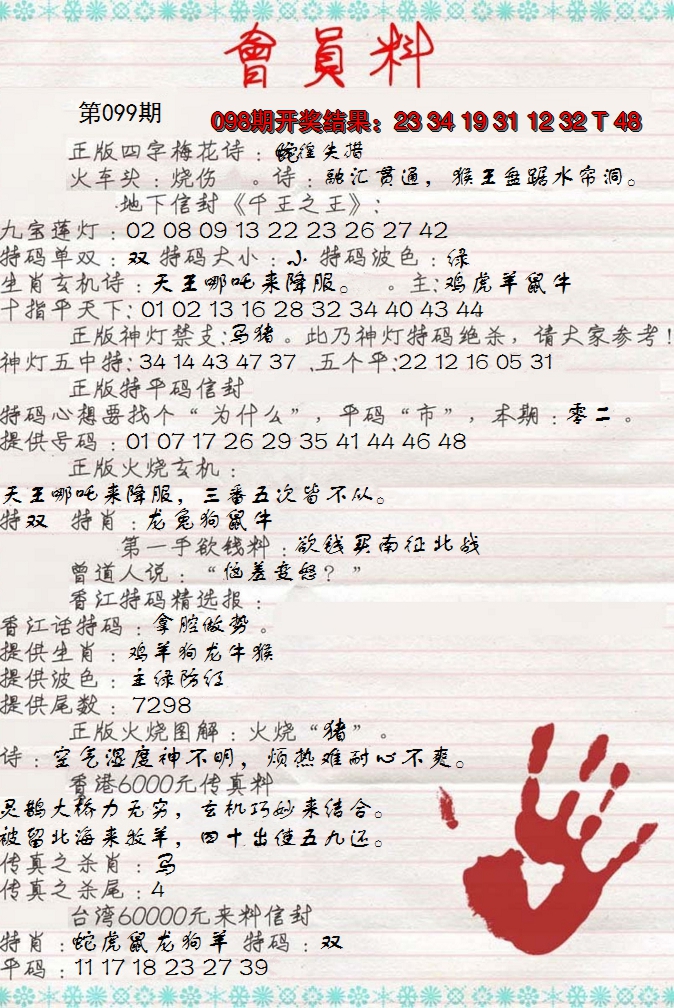 會員料
第099期
098期开奖结果：23 34 19 31 12 32 T 48
正版四字梅花诗：蛇徨失措
火车头：烧伤 。诗：融汇贯通，猴王盘踞水帘洞。
地下信封《千王之王》：
九宝莲灯：02 08 09 13 22 23 26 27 42
特码单双：双 特码大小：小 特码波色：绿
生肖玄机诗：天王哪吒来降服。 。主：鸡虎羊鼠牛
十指平天下：01 02 13 16 28 32 34 40 43 44
正版神灯禁支：马猪。此乃神灯特码绝杀，请大家参考！
神灯五中特：34 14 43 47 37 、五个平：22 12 16 05 31
正版特平码信封
特码心想要找个“为什么”，平码“市”，本期：零二。
提供号码：01 07 17 26 29 35 41 44 46 48
正版火烧玄机：
天王哪吒来降服，三番五次皆不从。
特双 特肖：龙兔狗鼠牛
第一手欲钱料：欲钱买南征北战
曾道人说：“恼羞变怒？”
香江特码精选报：
香江话特码：拿腔做势。
提供生肖：鸡羊狗龙牛猴
提供波色：主绿防红
提供尾数：7298
正版火烧图解：火烧“猪”。
诗：空气湿度神不明，烦热难耐心不爽。
香港6000元传真料
灵鹊大桥力无穷，玄机巧妙来结合。
被留北海来牧羊，四十出使五九还。
传真之杀肖：马
传真之杀尾：4
台湾60000元来料信封
特肖：蛇虎鼠龙狗羊 特码：双
平码：11 17 18 23 27 39